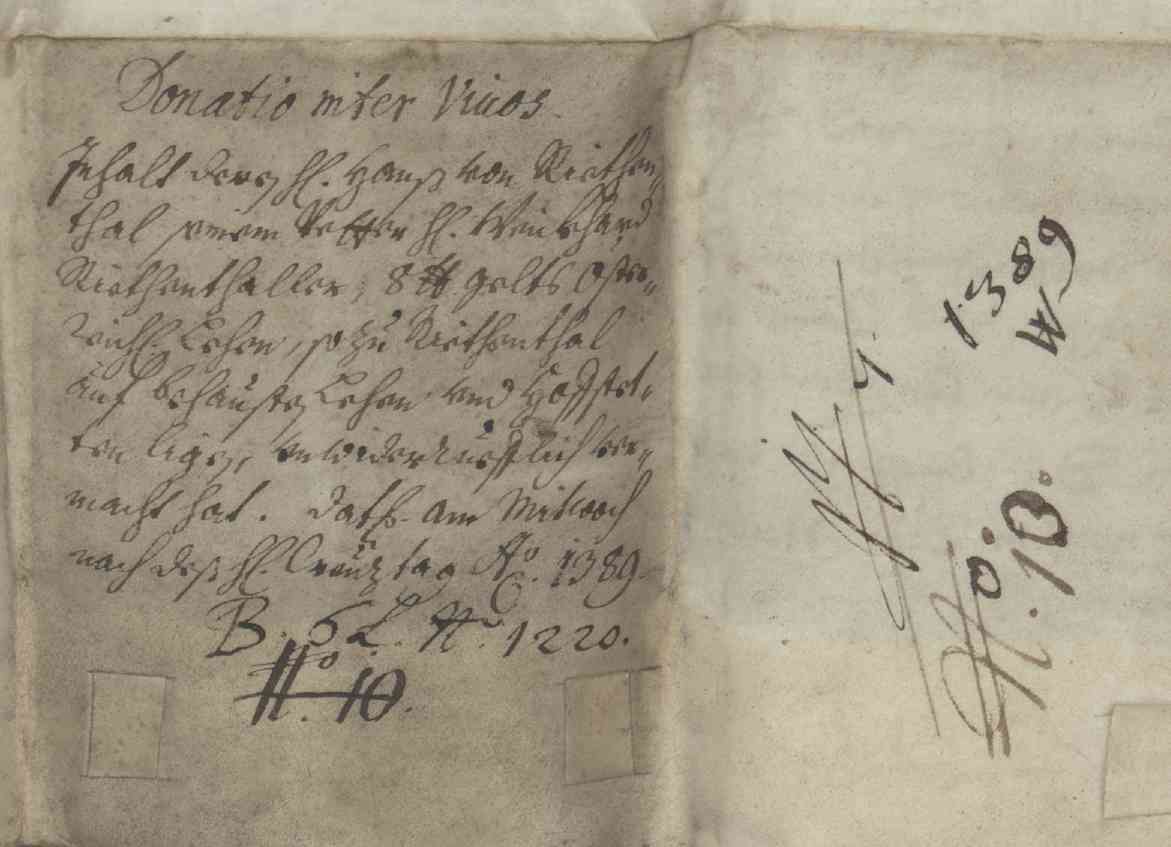 Donatio inter Viuos.
Inhalt derẽ H. Hanß von Riethen„
thal seinem Vetter H. Weickhard
Riethenthaller, 8 ℔ gelts Oster„
reichl. Lehen, so zu Riethenthal
auf behausten Lehen und Hoffstet„
ten ligen, unwiderrueflich ver„
macht hat. Dat. am Mitwoch
nach deß hl. Creuz tag Aº. 1389.
B. 6 L. Nº. 1220.
Nº. 10.
1389
W
Nº. 10.